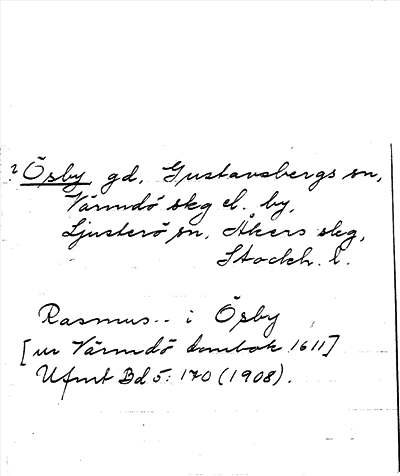 ? Ösby gd, Gustavsbergs sn,
Värmdö skg el. by,
Ljusterö sn, Åkers skg,
Stockh. l.
Rasmus.. i Ösby
[ur Värmdö dombok 1611]
Ufmt Bd 5: 170 (1908).